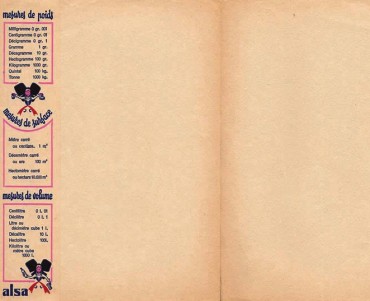 mesures de poids
Milligramme 0 gr. 001
Centigramme 0 gr. 01
Décigramme 0 gr. 1
Gramme 1 gr.
Décagramme 10 gr.
Hectogramme 100 gr.
Kilogramme 1000 gr.
Quintal 100 kg.
Tonne 1000 kg.
mesures de surface
Mètre carré
ou centiare. 1 m²
Décamètre carré
ou are 100 m²
Hectomètre carré
ou hectare 10.000 m²
mesures de volume
Centilitre 0 l. 01
Décilitre 0 l. 1
Litre ou
décimètre cube 1 l.
Décalitre 10 l.
Hectolitre 100 l.
Kilolitre ou
mètre cube
1000 l.
alsa